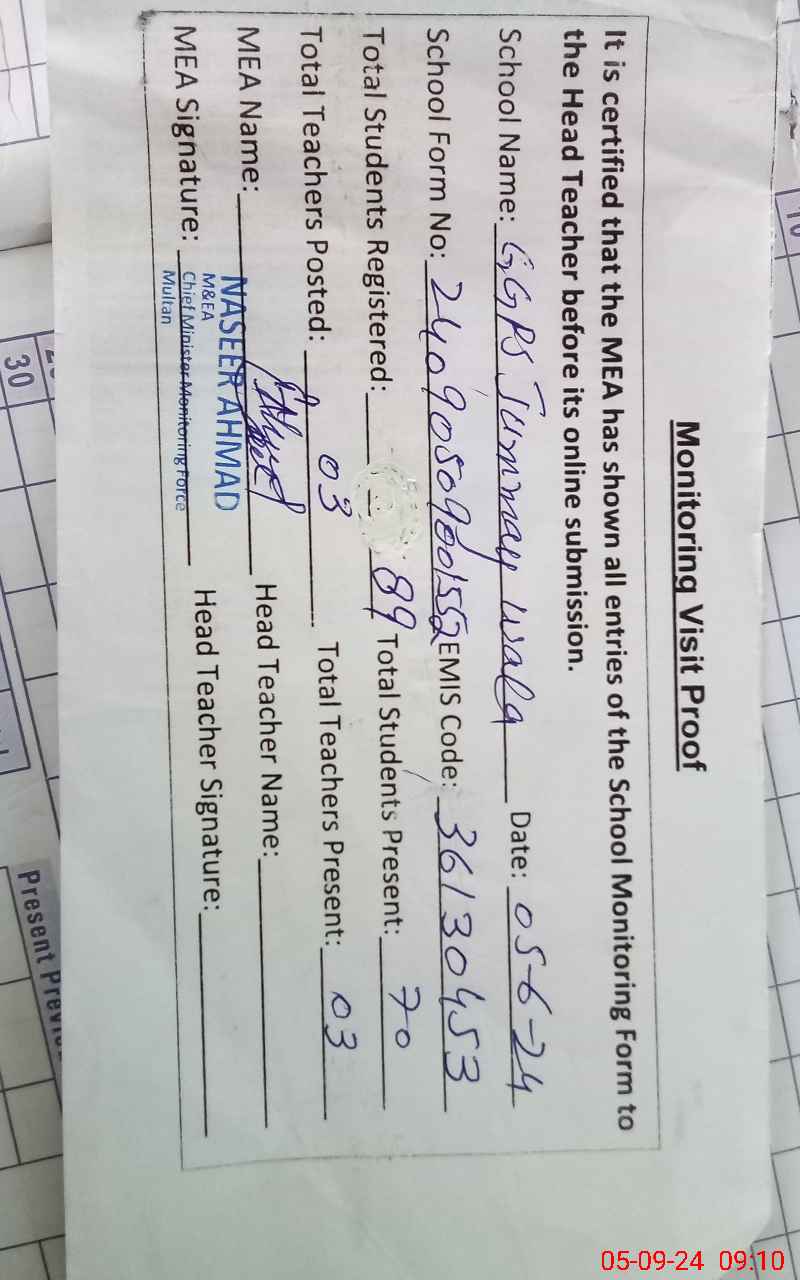 Monitoring Visit Proof
It is certified that the MEA has shown all entries of the School Monitoring Form to
the Head Teacher before its online submission.
School Name: GGPS Jummay wala Date: 05-6-24
School Form No: 24090509001552 EMIS Code: 36130453
Total Students Registered: 89 Total Students Present: 70
Total Teachers Posted: 03 Total Teachers Present: 03
MEA Name: NASEER AHMAD Head Teacher Name:
M&EA
MEA Signature: Chief Minister Monitoring Force Head Teacher Signature:
Multan
10
30
Present
05-09-24 09:10